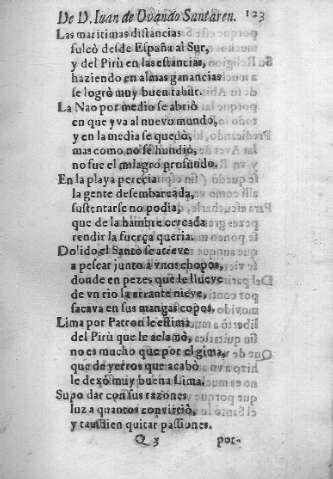 De D. Iuan de Ovando Santaren. 123
Las maritimas distancias
sulcò desde España al Sur,
y del Pirù en las estancias,
haziendo en almas ganancias
se logrò muy buen tahur.
La Nao por medio se abriò
en que yva al nuevo mundo,
y en la media se quedò,
mas como no se hundiò,
no fue el milagro profundo.
En la playa perecia
la gente desembarcada,
sustentarse no podia,
que de la hambre cercada
rendir la fuerça queria.
Dolido el Santo se atreve
a pescar junto à vnos chopos,
donde en pezes que le llueve
de vn rio la errante nieve,
sacava en sus mangas copos.
Lima por Patron le estima
del Pirù que le aclamò,
no es mucho que por el gima,
que de yerros que acabò
le dexò muy buena Lima.
Supo dar con sus razones
luz a quantos convirtiò,
y tambien quitar passiones.
Q 3 por-